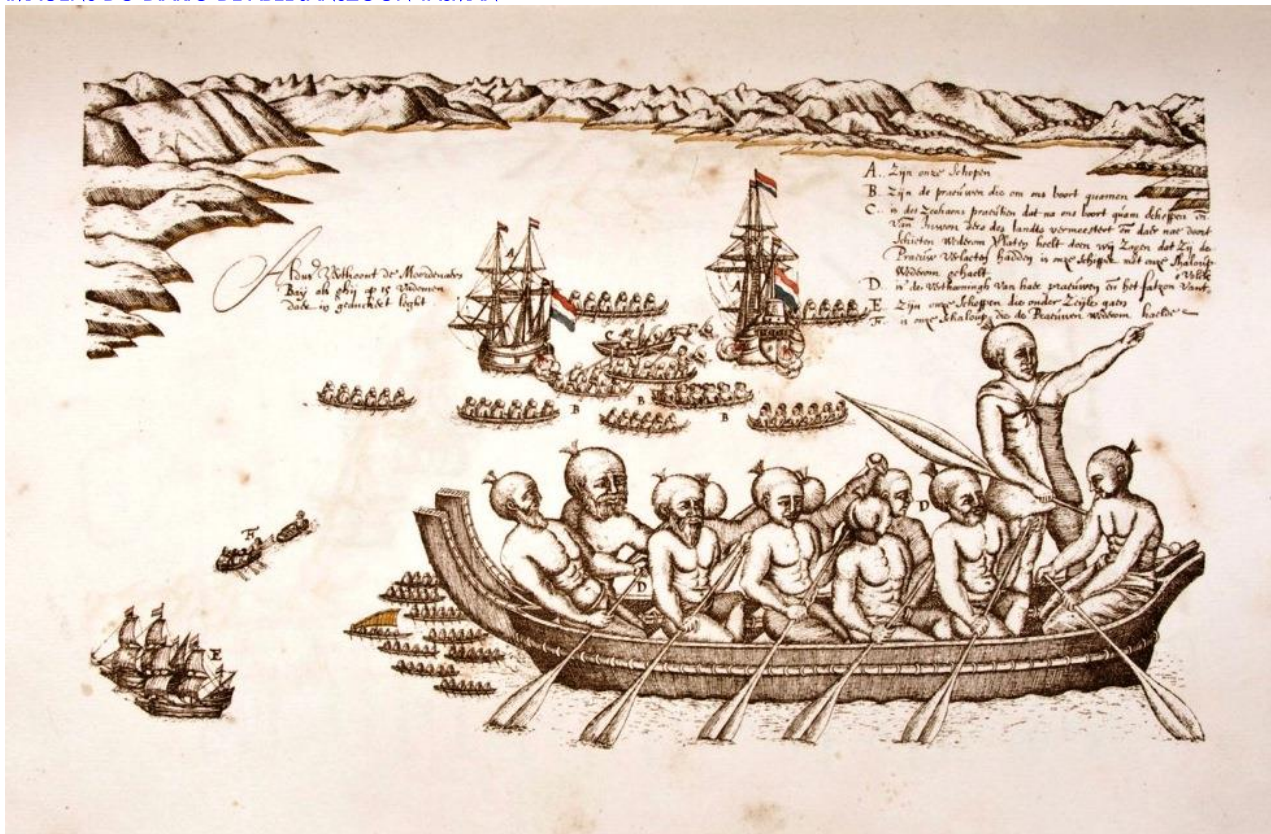 Aldus Verthoont de Moordenaers
Baij als ghij op 15 Vademen
daer in geanckert leght
A. Zijn onze Schepen
B. Zijn de praeuwen die om ons boort quamen
C. is des Zeehaens praeutien dat na ons boort quam
Van Inwoonders des landts vermeestert en daer nae door
Schieten Wederom Verlaten heeft doen wij Zagen dat Zij de
Praeuw Verlaeten hadden is onze Schipper met onze Shaloup
Wederom gehaelt
D. is de Verthooningh Van haer praeuwen en het fatzoen Van't Volck
E. Zijn onze Scheepen die onder Zeijle gaen
F. is onze Shaloup die de Praeuwen Wederom haelde
A
A
B
B
B
D
D
F
E